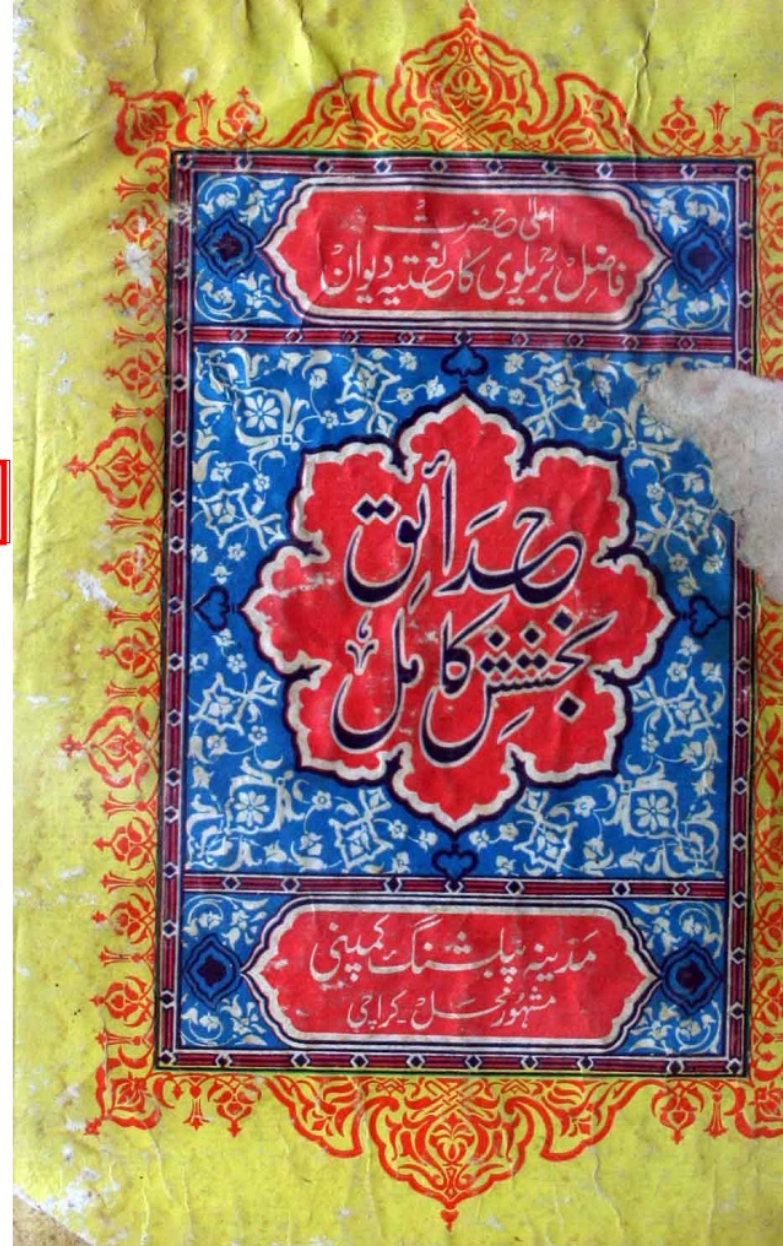 اعلیٰ حضرت
فاضل بریلوی کا نعتیہ دیوان
حدائق
بخشش کامل
مدینہ پبلشنگ کمپنی
مشہور محل ۔ کراچی